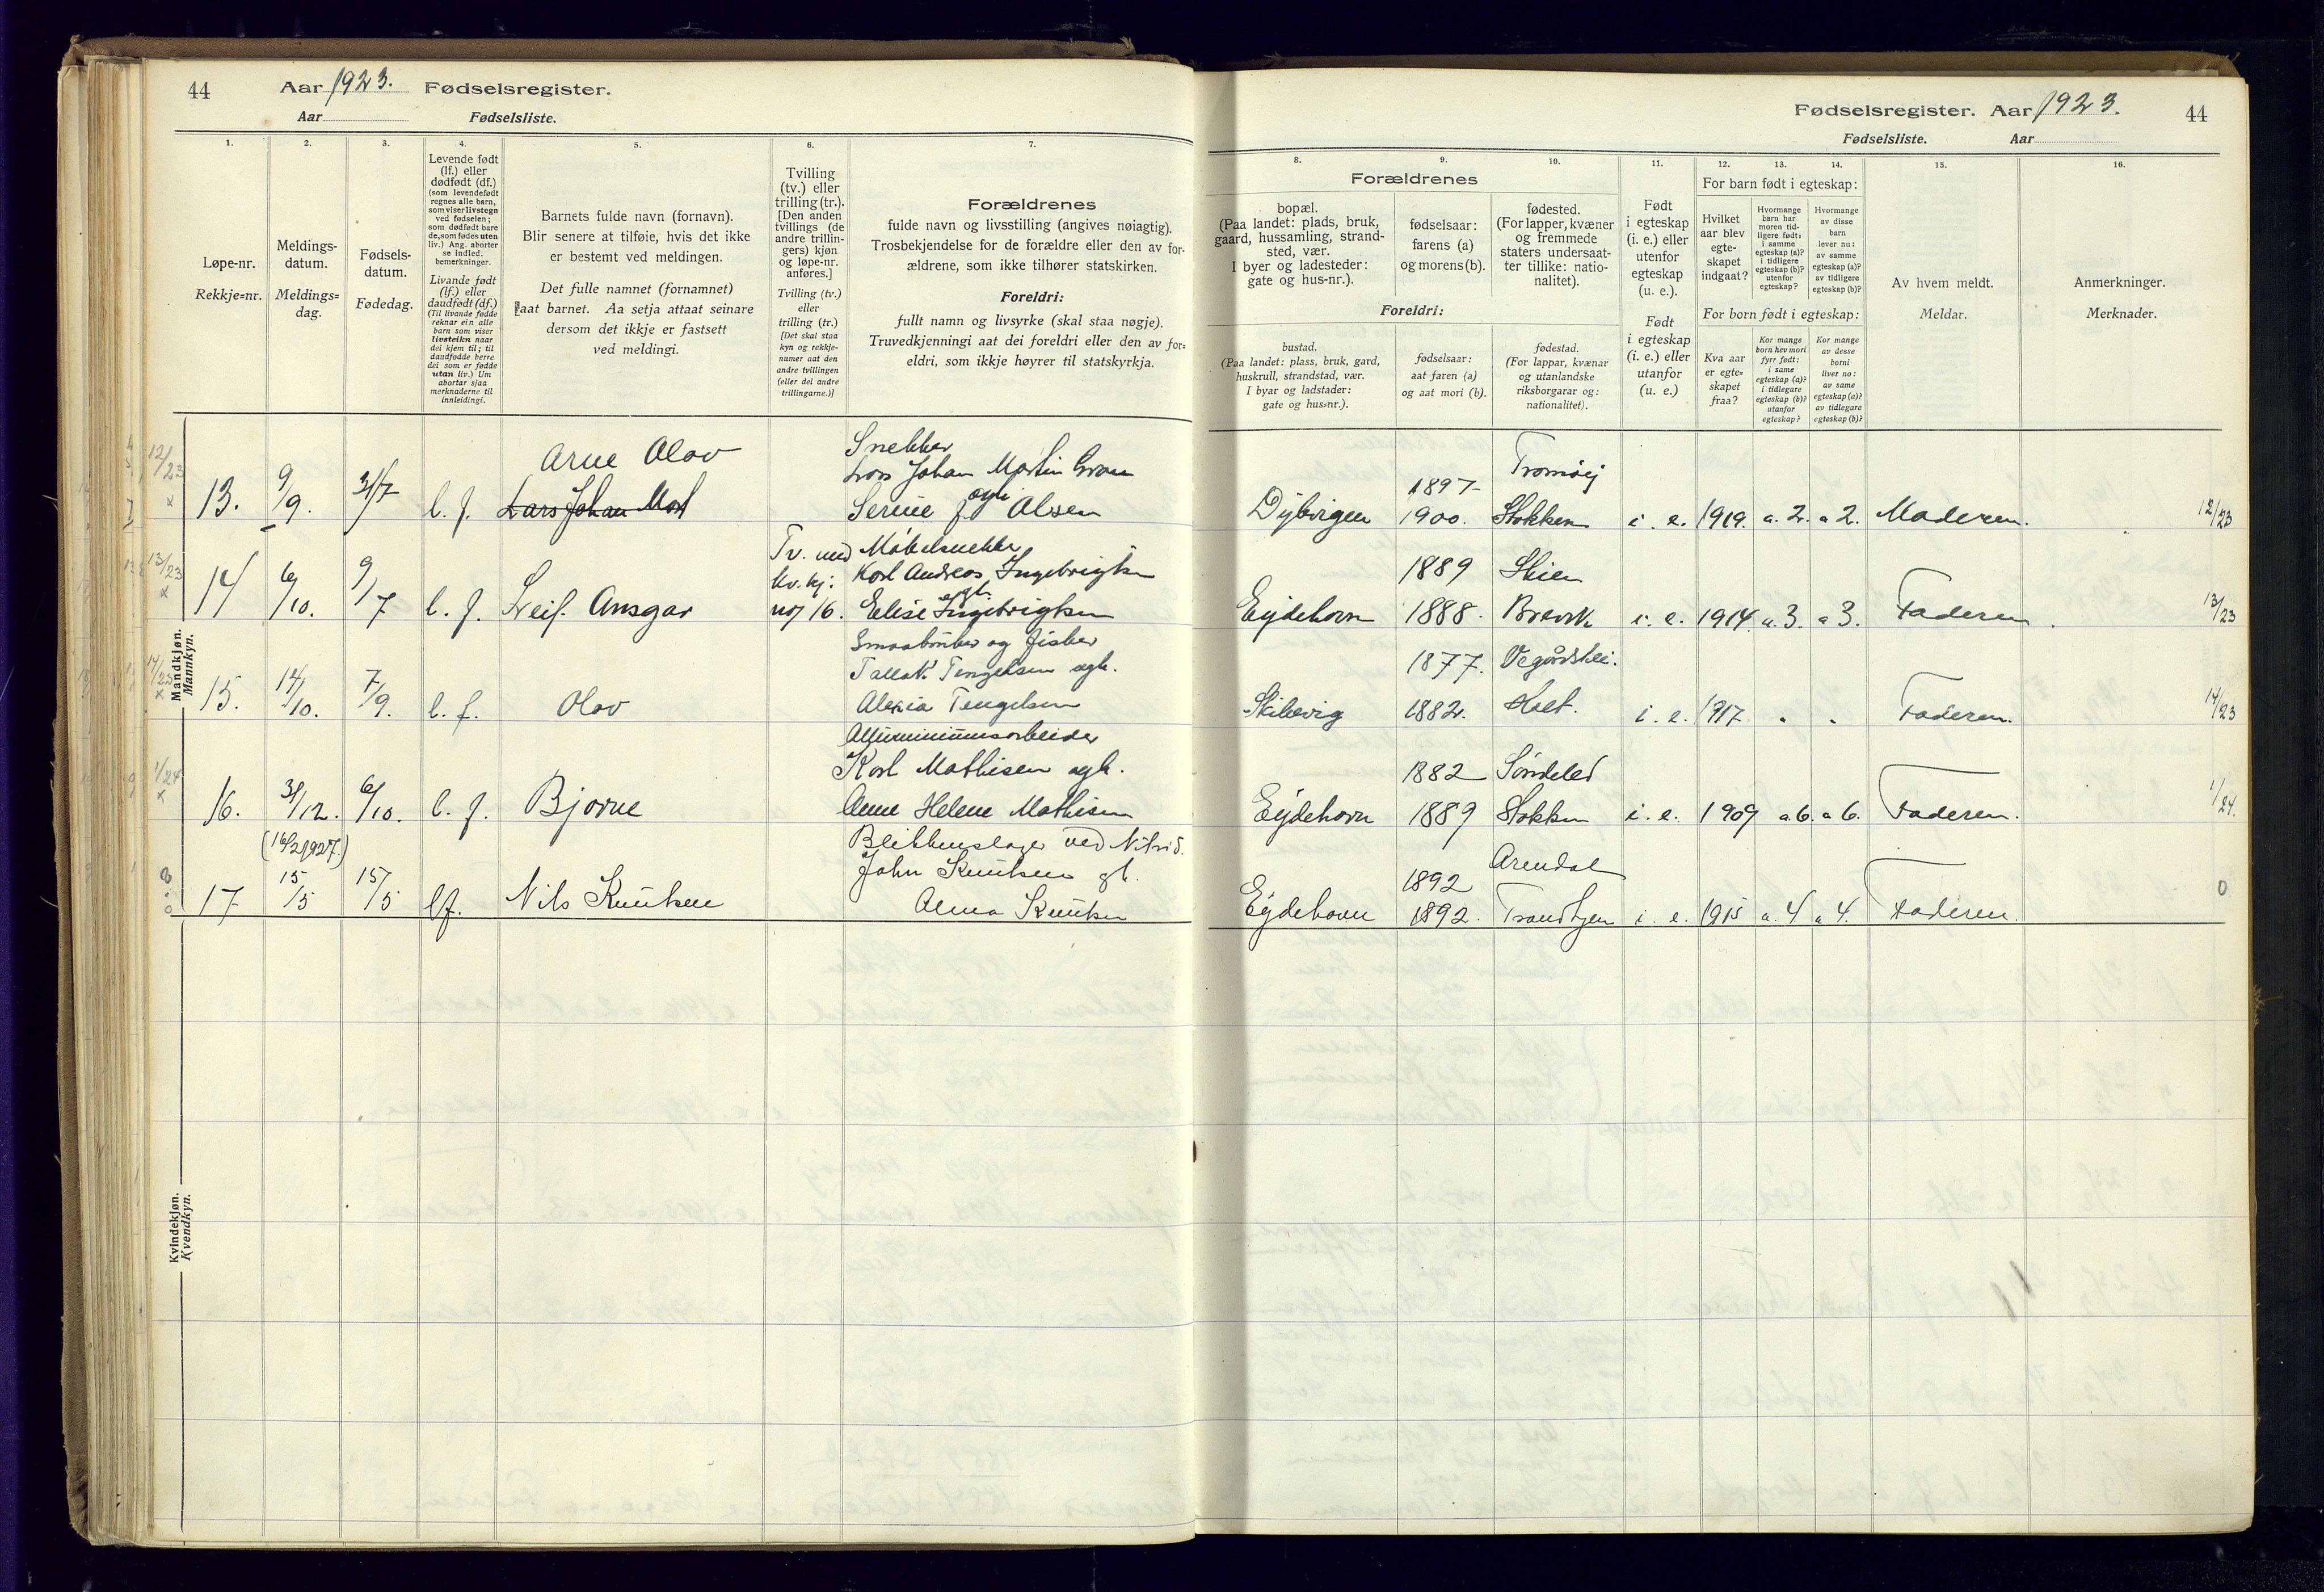 44
Aar 1923. Fødselsregister.
Aar Fødselsliste.
Fødselsregister. Aar 1923.
44
Fødselsliste. Aar
1.
Løpe-nr.
Rekkje-nr.
2.
Meldings-
datum.
Meldings-
dag.
3.
Fødsels-
datum.
Fødedag.
4.
Levende født
(lf.) eller
dødfødt (df.)
(som levendefødt
regnes alle barn,
som viser livstegn
ved fødselen;
som dødfødt bare
de, som fødes uten
liv.) Ang. aborter
se indled.
bemerkninger.
Livande født
(lf.) eller
daudfødt (df.)
(Til livande fødde
reknar ein alle
barn som viser
livsteikn naar
dei kjem til; til
daudfødde berre
dei som er fødde
utan liv.) Um
abortar sjaa
merknaderne til
innleidingi.
5.
Barnets fulde navn (fornavn).
Blir senere at tilføie, hvis det ikke
er bestemt ved meldingen.
Det fulle namnet (fornamnet)
aat barnet. Aa setja attaat seinare
dersom det ikkje er fastsett
ved meldingi.
6.
Tvilling
(tv.) eller
trilling (tr.).
[Den anden
tvillings (de
andre trillin-
gers) kjøn
og løpe-nr.
anføres.]
Tvilling (tv.)
eller
trilling (tr.)
[Det skal staa
kyn og rekkje-
numer aat den
andre tvillingen
(eller dei andre
trillingarne.)]
7.
Forældrenes
fulde navn og livsstilling (angives nøiagtig).
Trosbekjendelse for de forældre eller den av for-
ældrene, som ikke tilhører statskirken.
Foreldri:
fullt namn og livsyrke (skal staa nøgje).
Truvedkjenningi aat dei foreldri eller den av for-
eldri, som ikkje høyrer til statskyrkja.
8.
Forældrenes
bopæl.
(Paa landet: plads, bruk,
gaard, hussamling, strand-
sted, vær.
I byer og ladesteder:
gate og hus-nr.).
9.
fødselsaar:
farens (a)
og morens (b).
10.
fødested.
(For lapper, kvæner
og fremmede
staters undersaat-
ter tillike: natio-
nalitet).
Foreldri:
bustad.
(Paa landet: plass, bruk, gard,
huskrull, strandstad, vær.
I byar og ladstader:
gate og hus-nr.).
fødselsaar:
aat faren (a)
og aat mori (b).
fødestad.
(For lappar, kvænar
og utanlandske
riksborgarar og:
nationalitet).
11.
Født
i egteskap
(i. e.) eller
utenfor
egteskap
(u. e.).
Født
i egteskap
(i. e.) eller
utanfor
(u. e.)
12. 13. 14.
For barn født i egteskap:
Hvilket
aar blev
egte-
skapet
indgaat?
Hvormange
barn har
moren tid-
ligere født:
i samme
egteskap (a)?
i tidligere
egteskap (b)?
utenfor
egteskap?
Hvormange
av disse
barn
lever nu:
av samme
egteskap (a)?
av tidligere
egteskap (b)?
For born født i egteskap:
Kva aar
er egte-
skapet
fraa?
Kor mange
born hev mori
fyrr født:
i same
egteskap (a)?
i tidlegare
egteskap (b)?
utanfor
egteskap?
Kor mange
av desse
borni
liver no:
av same
egteskap (a)?
av tidlegare
egteskap (b)?
15.
Av hvem meldt.
Meldar.
16.
Anmerkninger.
Merknader.
Mandkjøn.
Mannkyn.
12/23 x
13. 9/9. 31/7 l. f. Arne Olav
Lars Johan Mart
Snekker
Lars Johan Martin
Serine J. Olsen
Dybvigen 1897 Tromøy
1900. Stokken i. e. 1919. a. 2. a 2. Moderen. 12/23
13/23 x
14 6/10. 9/7 l. f. Leif. Ansgar
Tv. med
kv. kj.
no/ 16.
Møbelsnekker
Karl Andreas Ingebrigtsen
Elise Ingebrigtsen
Eydehavn 1889 Skien
1888. Brevik i. e. 1914. a. 3. a 3. Faderen. 13/23
14/23 x
15. 14/10. 7/9. l. f. Olav
Smaabruker og fisker
Tallak Tengelsen ogh.
Alexia Tengelsen
Skilsvig 1877. Vegårdshei.
1882. Holt. i. e. 1917. Faderen. 14/23
1/24 x
16. 31/12. 6/10. l. f. Bjarne
Alluminiumsarbeider
Karl Mathisen ogh.
Anne Helene Mathisen
Eydehavn 1882 Søndeled
1889 Stokken i. e. 1909 a 6. a 6. Faderen. 1/24.
(16/2 1927.)
17 15/5 15/5 lf. Nils Knutsen
Blikkenslager ved Nitrid.
John Knutsen gh.
Anna Knutsen
Eydehavn 1892 Arendal
1892. Trondhjem i. e. 1915 a. 4 a 4. Faderen. 0
Kvindekjøn.
Kvendkyn.